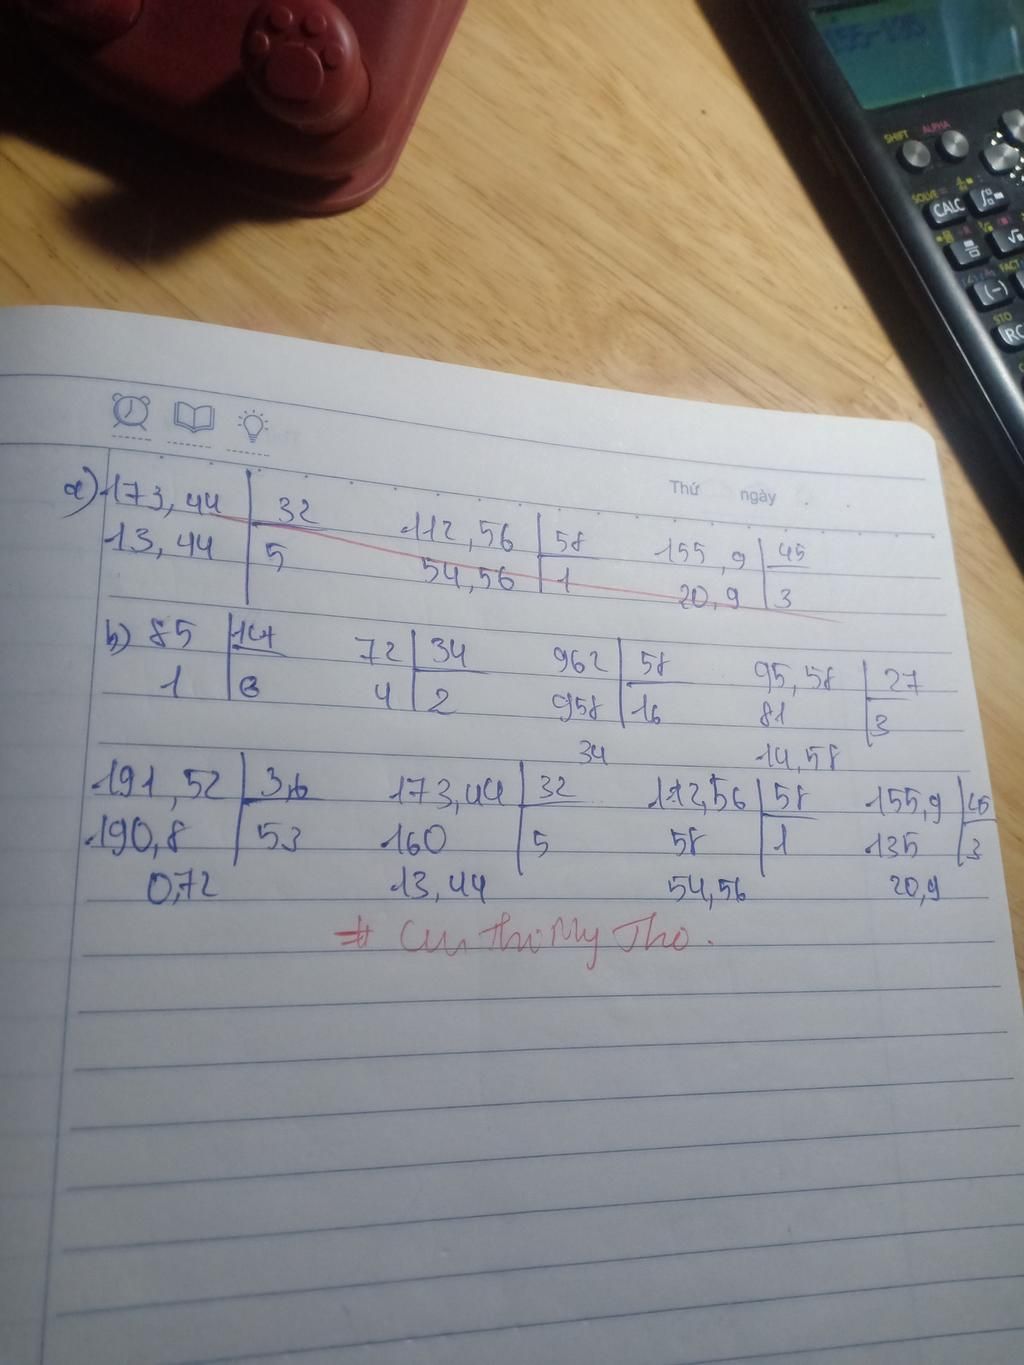 SHIFT ALPHA
SOLVE =
CALC
(-) FACT
STO
RC
Thứ ngày
a) 173,44 32 112,56 58 155,9 45
13,44 5 54,56 1 20,9 3
b) 85 14 72 34 962 58 95,58 27
1 6 4 2 958 16 81 3
34 14,58
191,52 3,6 173,44 32 112,56 58 155,9 45
190,8 53 160 5 58 1 135 3
0,72 13,44 54,56 20,9
My Tho.